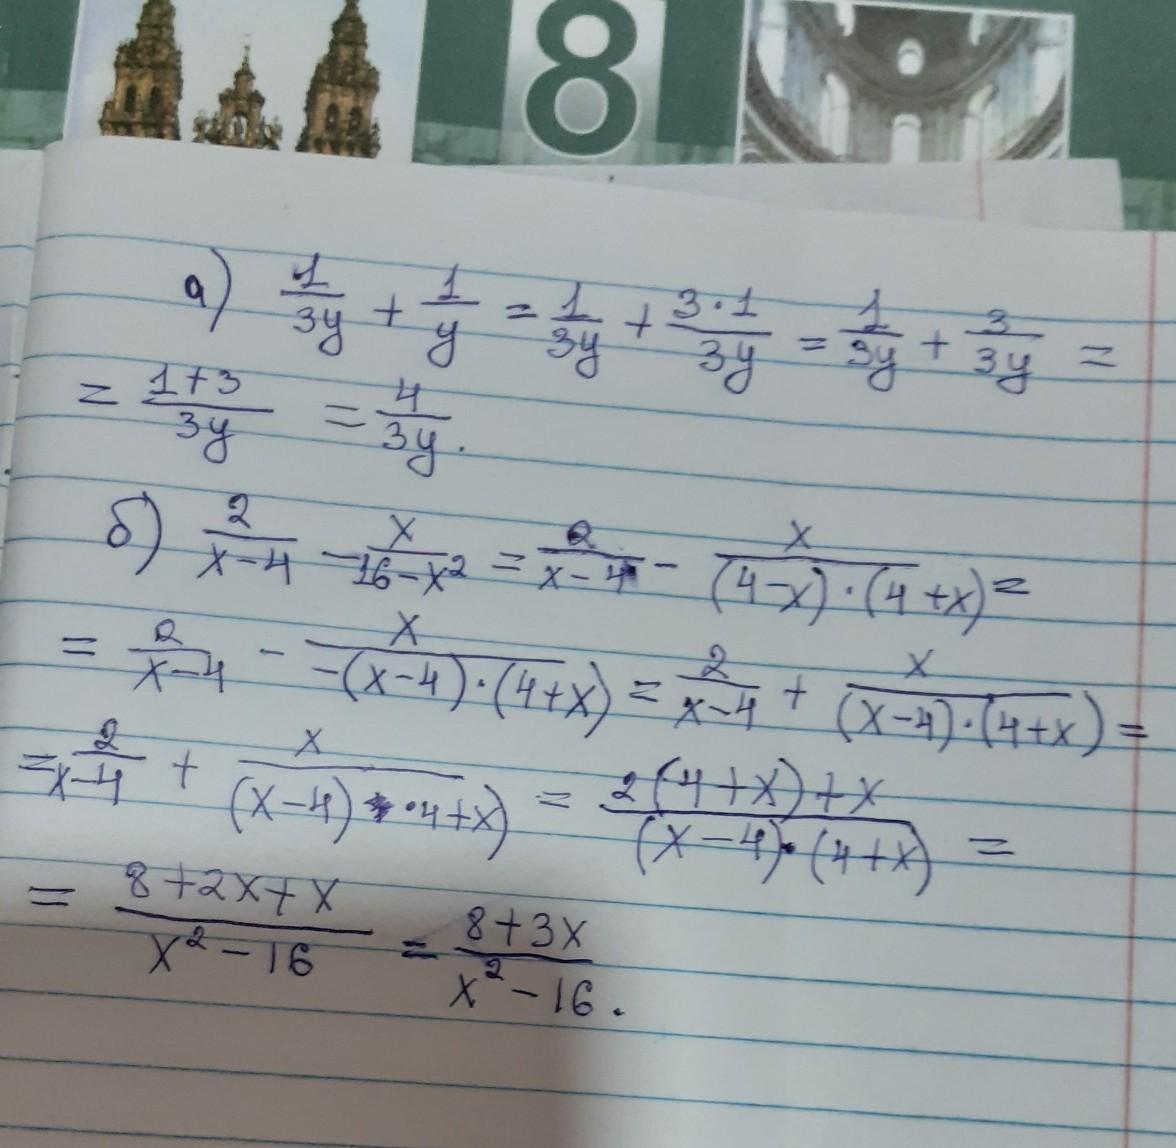 8
а) 1/3y + 1/y = 1/3y + 3·1/3y = 1/3y + 3/3y =
= 1+3/3y = 4/3y.
б) 2/x-4 - x/16-x² = 2/x-4 - x/(4-x)·(4+x) =
= 2/x-4 - x/-(x-4)·(4+x) = 2/x-4 + x/(x-4)·(4+x) =
= 2/x-4 + x/(x-4)·4+x) = 2(4+x)+x/(x-4)·(4+x) =
= 8+2x+x/x²-16 = 8+3x/x²-16.